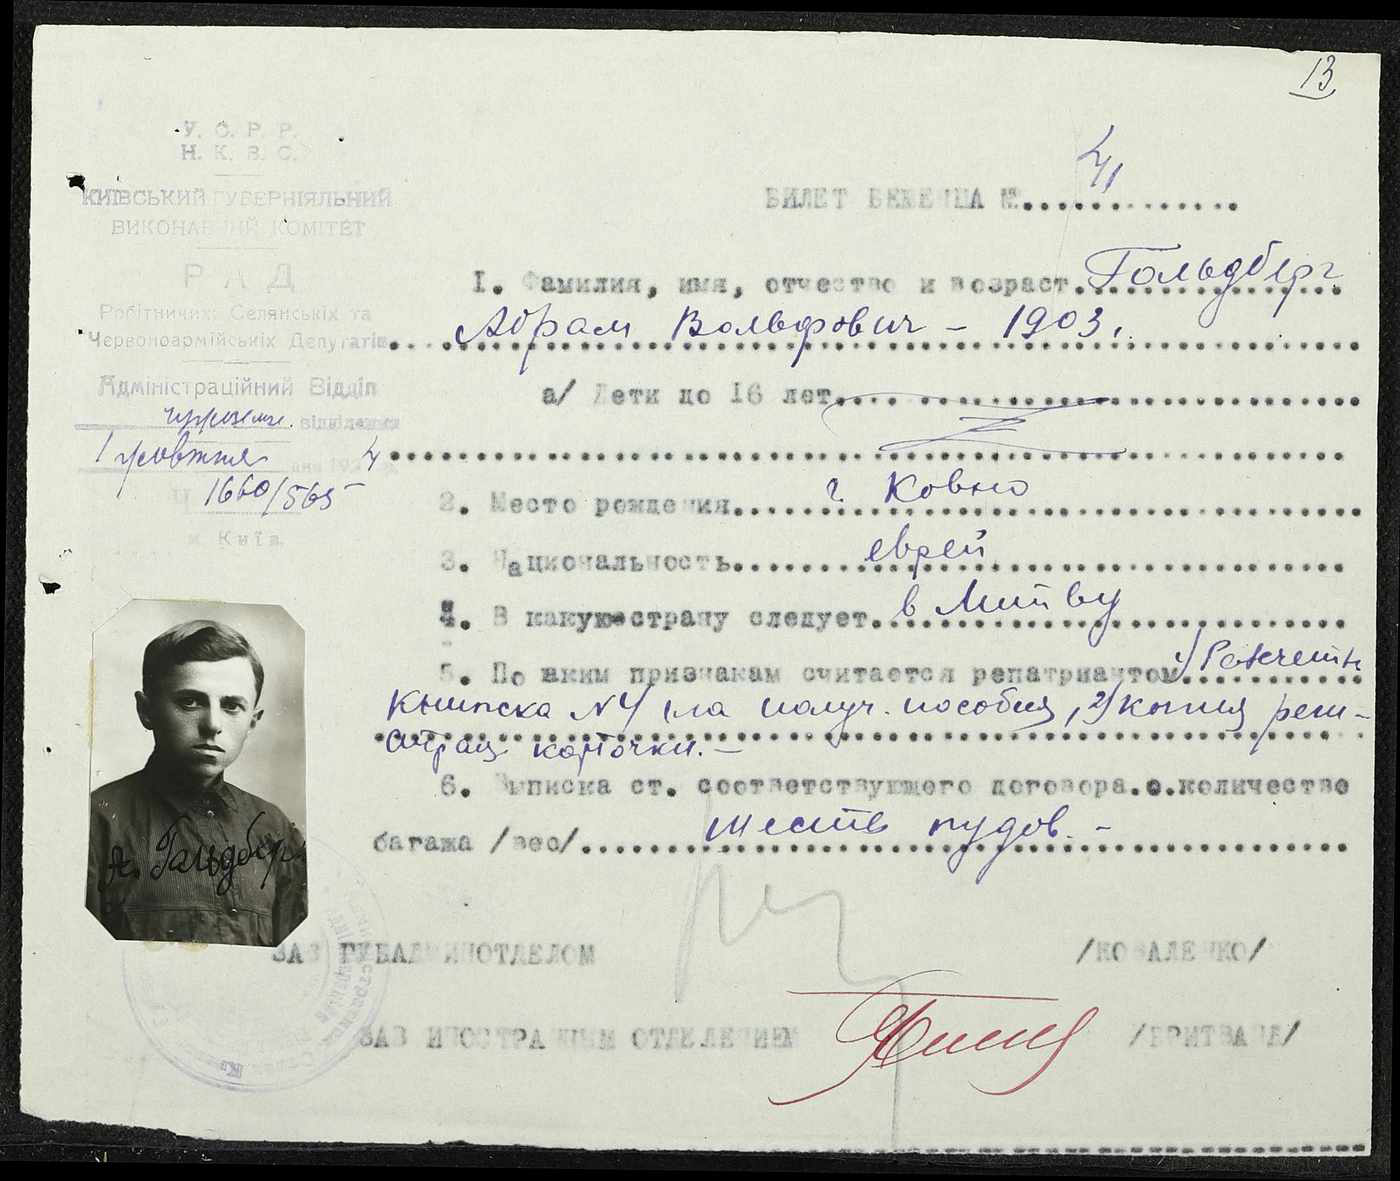 13
У. С. Р. Р.
Н. К. В. С.
КИЇВСЬКИЙ ГУБЕРНІЯЛЬНИЙ
ВИКОНАВЧИЙ КОМІТЕТ
РАД
Робітничих Селянських та
Червоноармійських Депутатів
Адміністраційний Відділ
відділення
1 жовтня 4
1660/565
м. Київ
БИЛЕТ БЕЖЕНЦА № 41
I. Фамилия, имя, отчество и возраст. Гольдберг
Абрам Вольфович - 1903.
а/ Дети до 16 лет
2. Место рождения г. Ковно
3. Национальность еврей
4. В какую страну следует в Литву
5. По каким признакам считается репатриантом 1/ Расчетн
книжка N4 получ. пособия, 2/ копия реги-
страц карточки. -
6. Выписка ст. соответствующего договора.о.количестве
багажа /вес/ шесть пудов. -
А. Гольдберг
ЗАВ ГУБАДМИНОТДЕЛОМ /КОВАЛЕНКО/
ЗАВ ИНОСТРАННЫМ ОТДЕЛЕНИЕМ /БРИТВАНД/